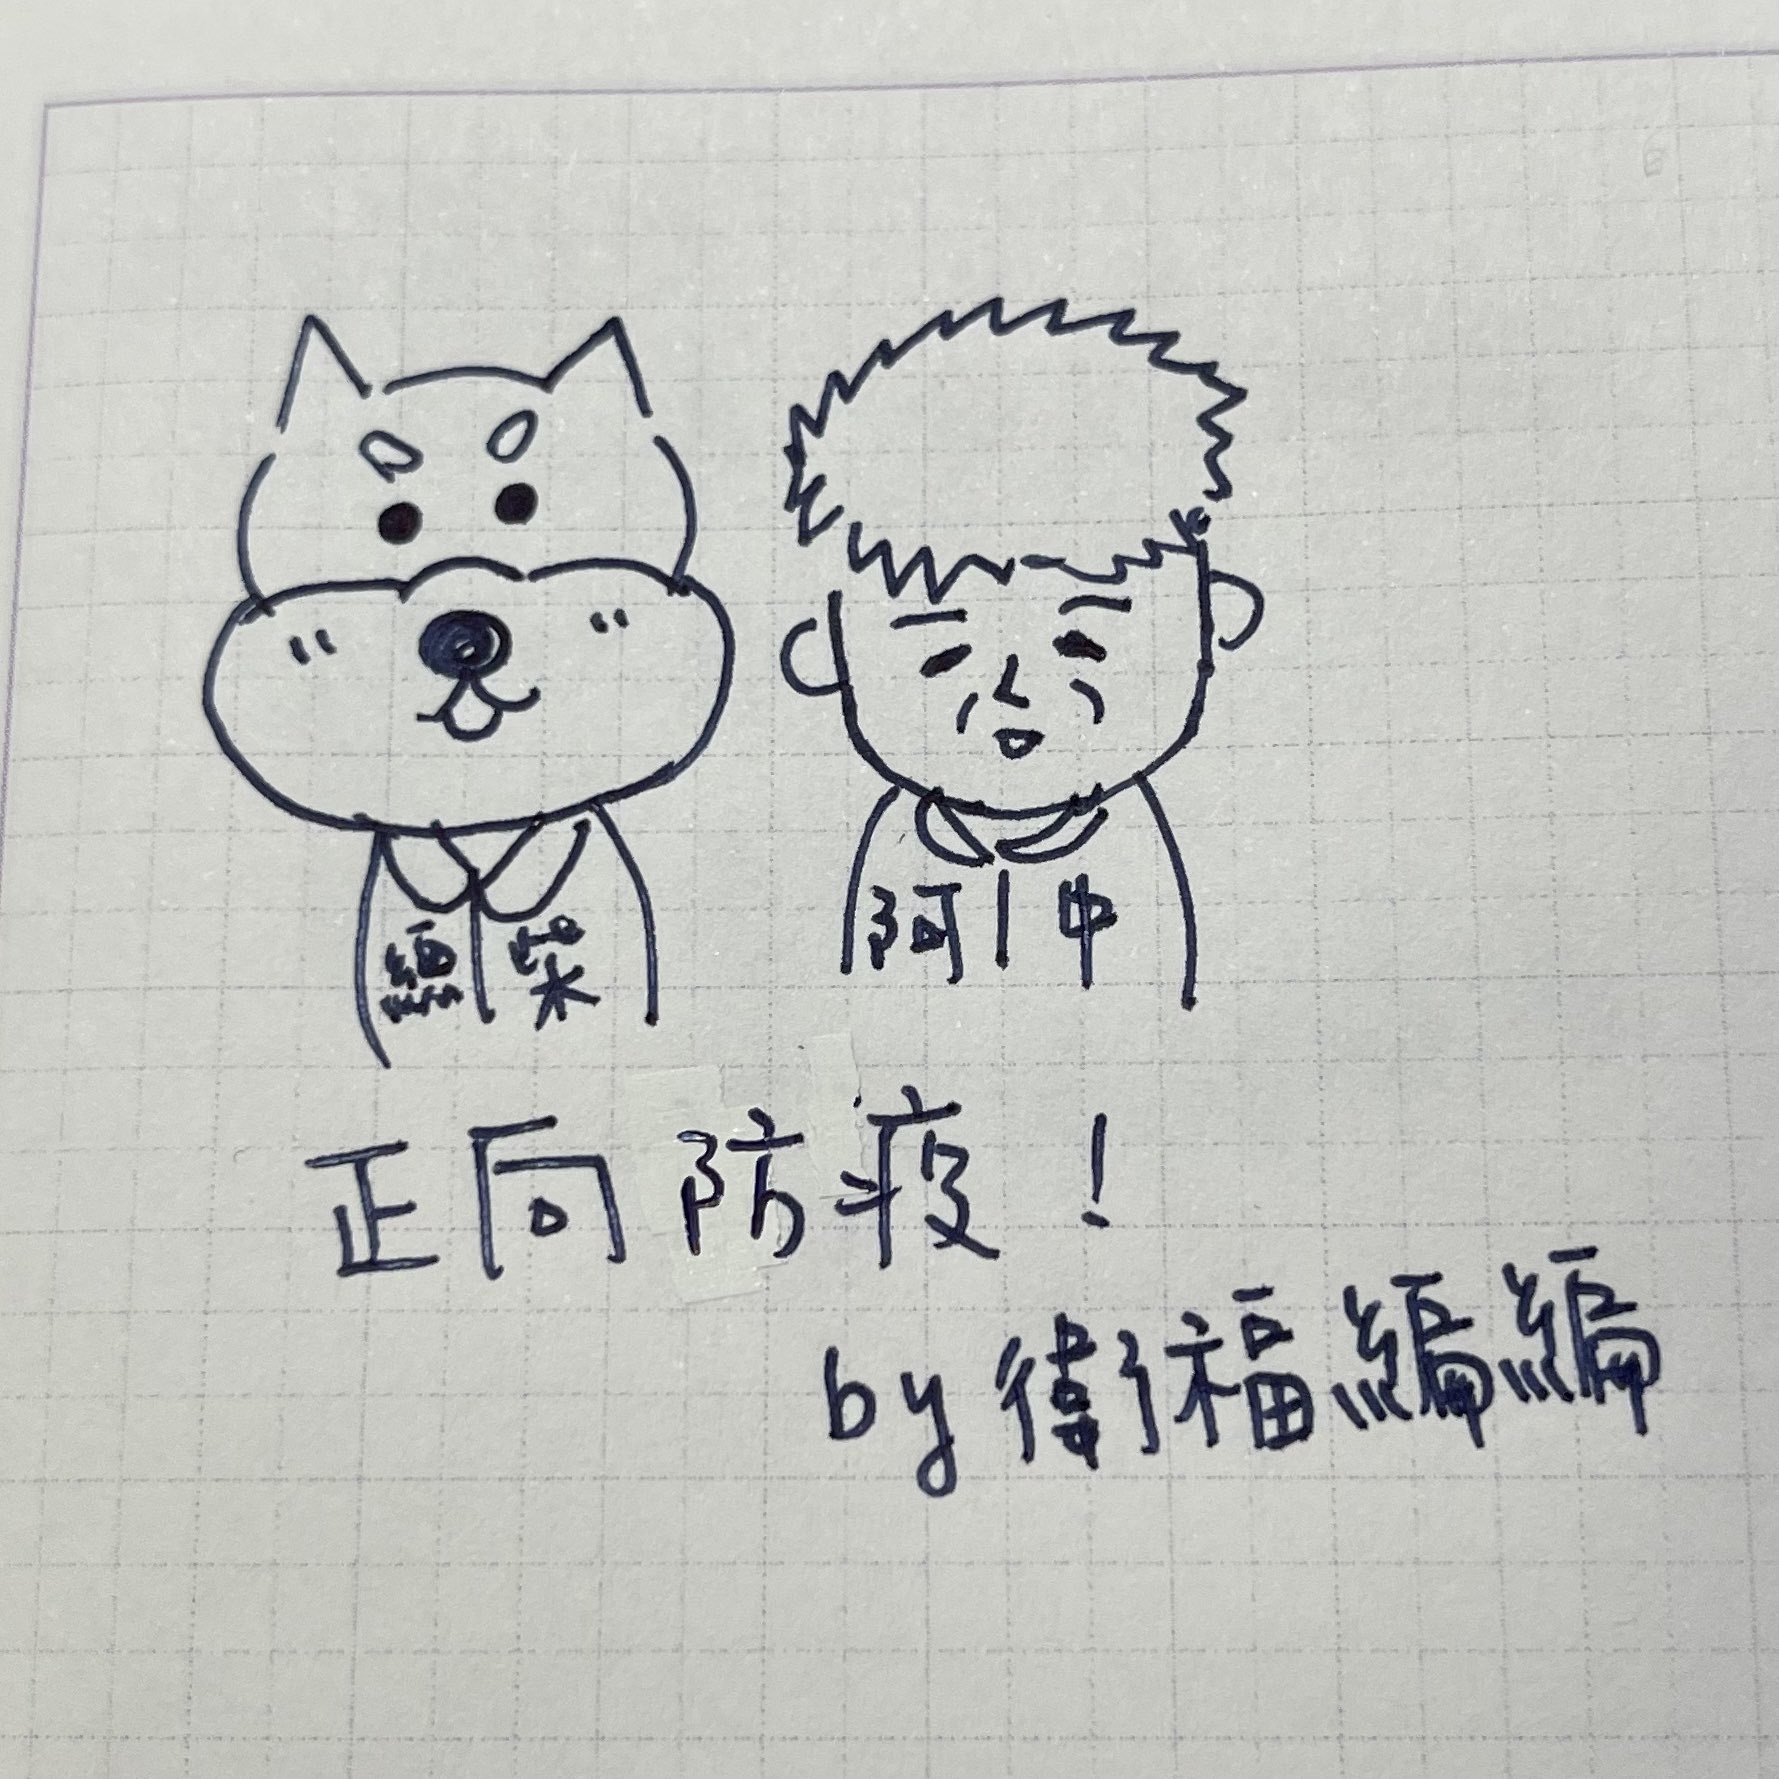 總柴
阿中
正向防疫！
by 衛福編編